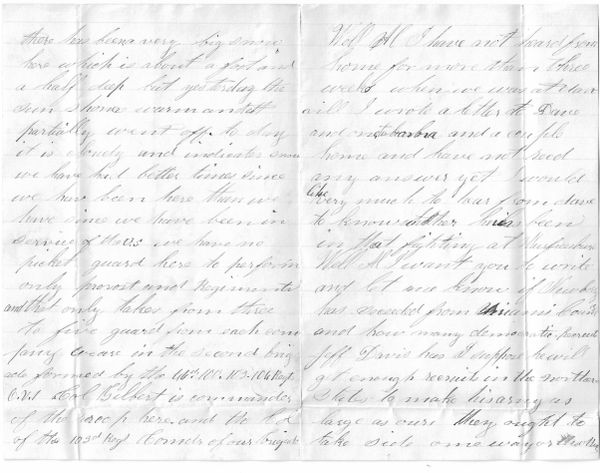 there has been a very big snow
here which is about a foot and
a half deep but yesterday the
sun shone warm and it
partially went off to day
it is cloudy and indicates snow
we have had better times since
we have been here than we
have since we have been in
service of the U.S. we have no
picket guard here to perform
only provost and Regimental
and that only takes from three
to five guard from each com
pany we are in the second brig
ade formed by the 44th 100. 103. 104 Regt
O.V.I Col Gilbert is commander
of the troop here and the Col
of the 103rd Regt Comdr of our brigade
Well Al I have not heard from
home for more than three
weeks when we was at
I wrote a letter to Dave
and one to barbra and a couple
home and have not recd
any answer yet I would
like very much to hear from dave
to know wether he has been
in that fighting at
Well Al I want you to write
and let me know if
has seceded from Miami County
and how many democratic Recruit
Jeff Davis has I suppose he will
get enough recruit in the northern
States to make his army as
large as ours they ought to
take side one way or the other